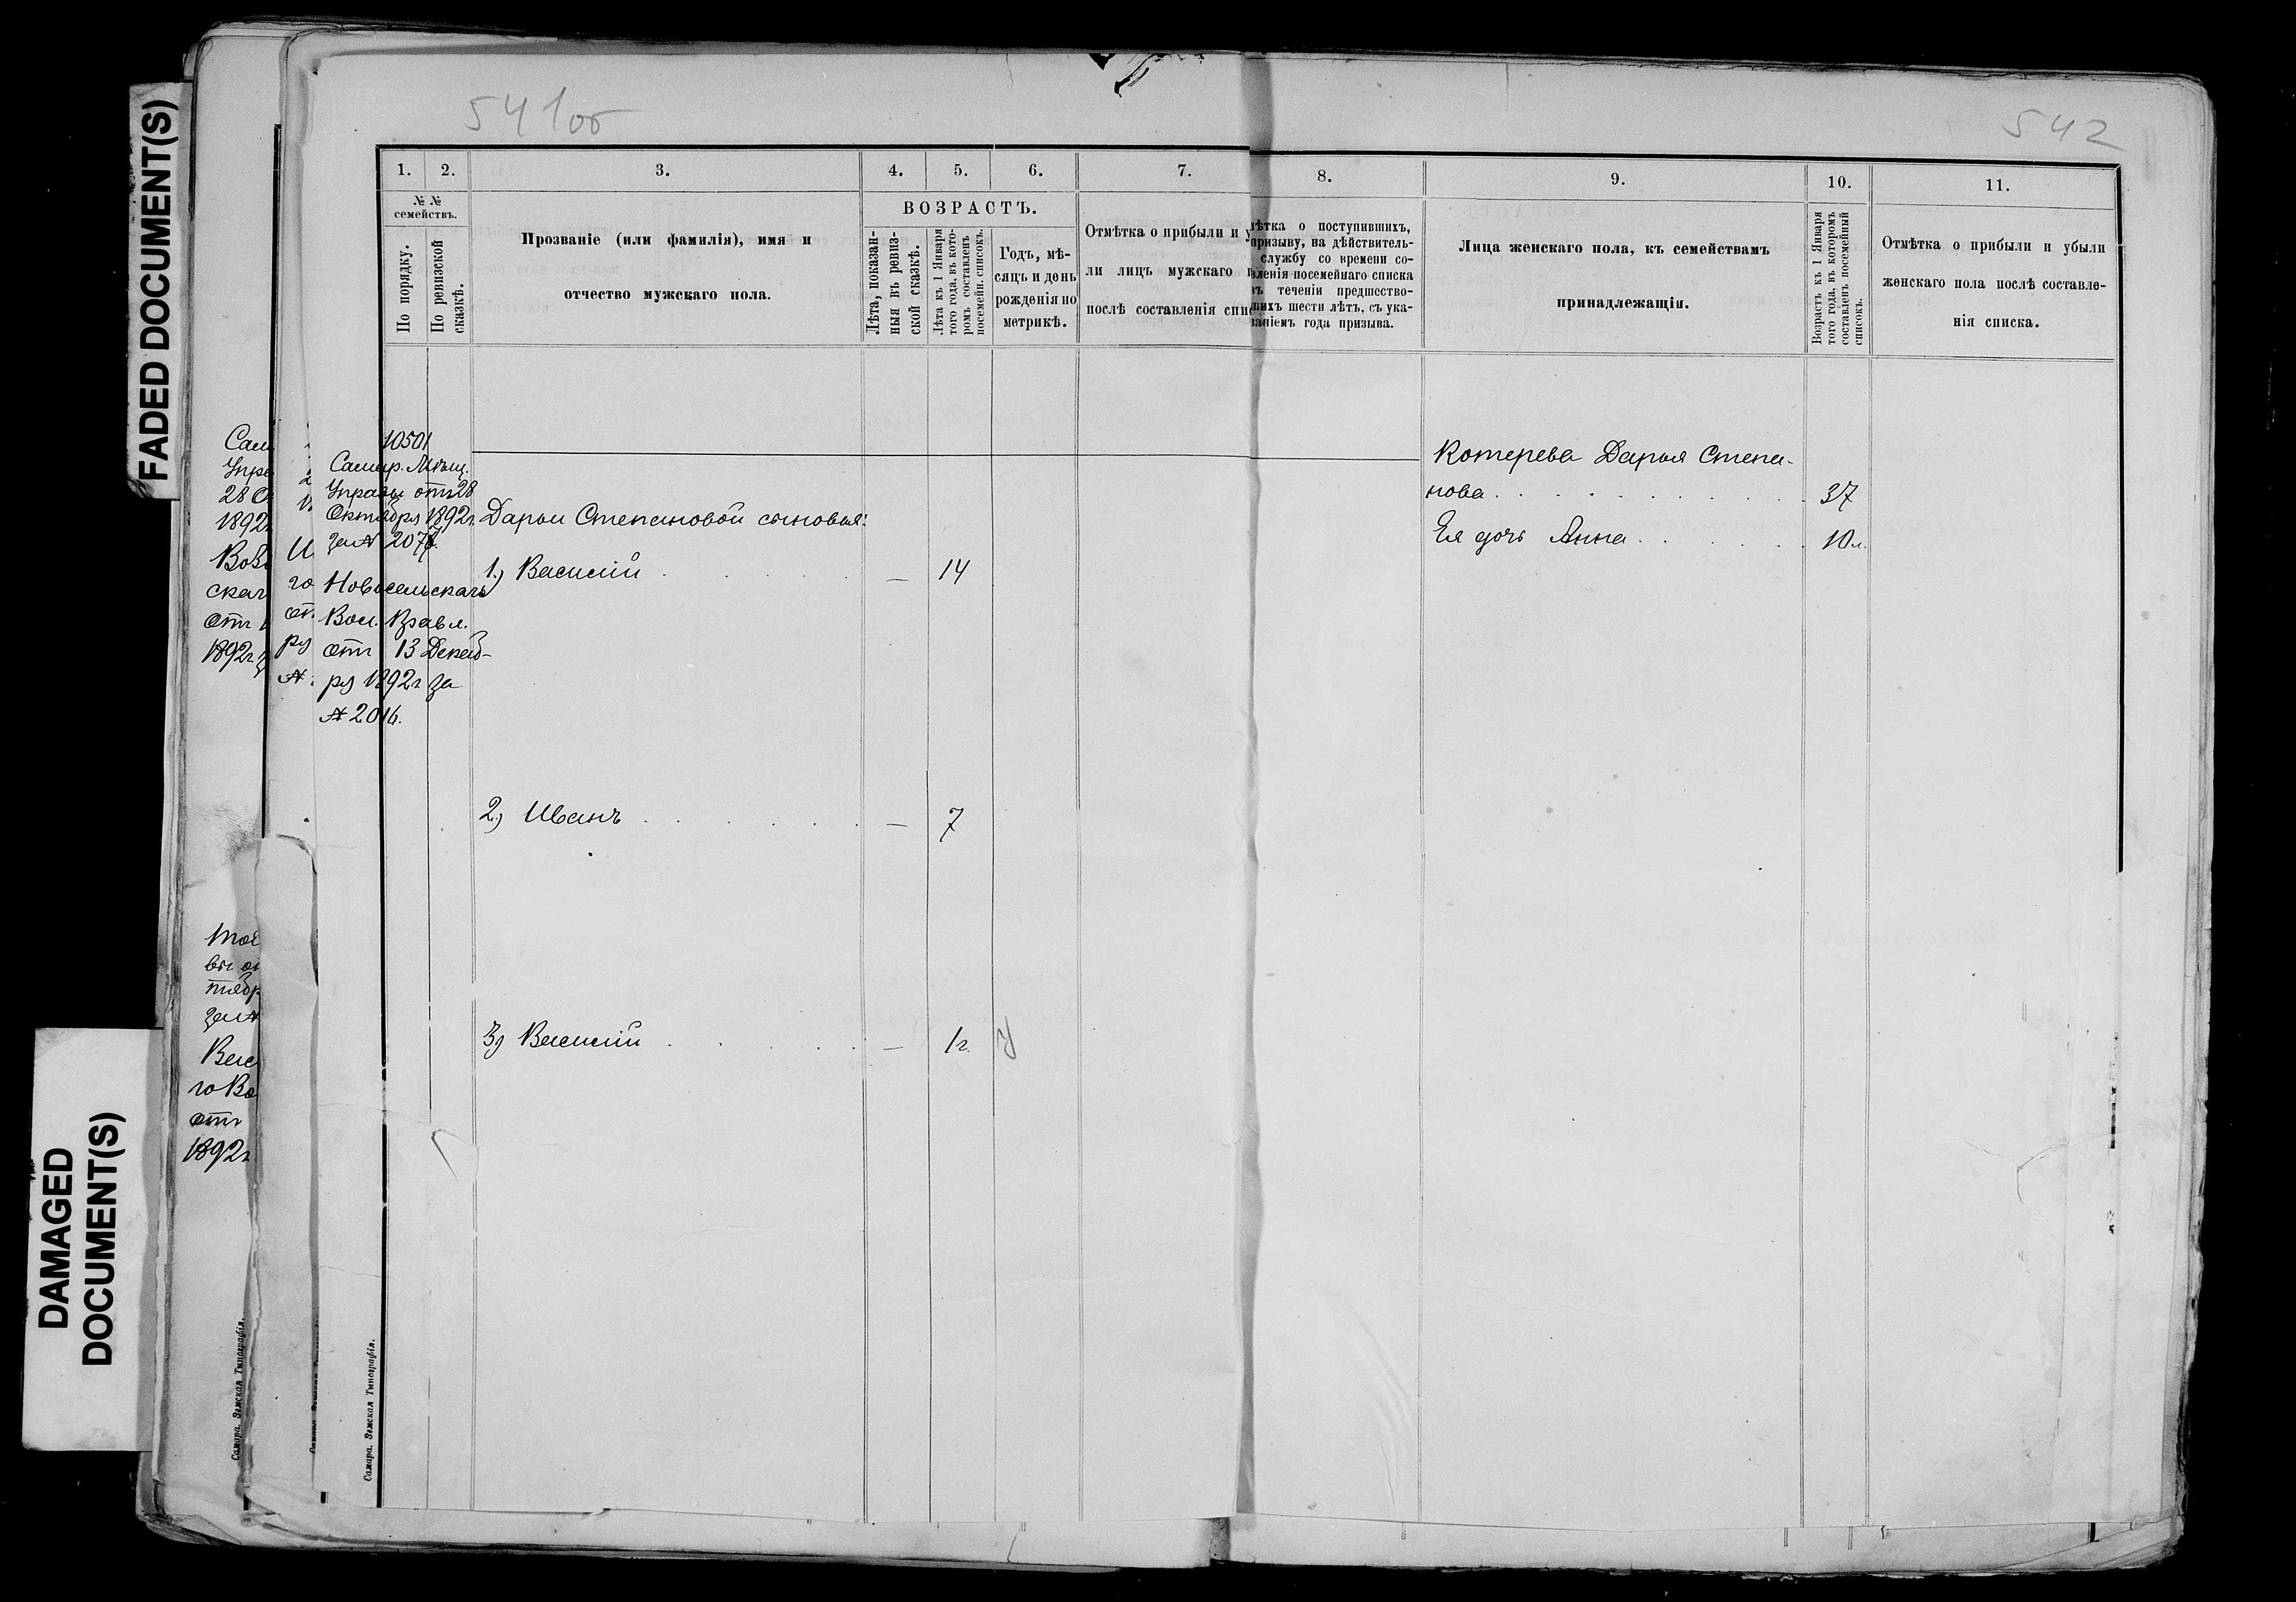 FADED DOCUMENT(S)
DAMAGED
DOCUMENT(S)
541об
542
1.
2.
3.
4.
5.
6.
7.
8.
9.
10.
11.
№ №
семействъ.
По порядку.
По ревизской
сказкѣ.
Прозваніе (или фамилія), имя и
отчество мужскаго пола.
ВОЗРАСТЪ.
Лѣта, показан-
ныя въ ревиз-
ской сказкѣ.
Лѣта къ 1 Января
того года, въ кото-
ромъ составленъ
посемейн. списокъ.
Годъ, мѣ-
сяцъ и день
рожденія по
метрикѣ.
Отмѣтка о прибыли и у
ли лицъ мужскаго
послѣ составленія спи
ѣтка о поступившихъ,
призыву, на дѣйствитель-
службу со времени со-
вленія посемейнаго списка
въ теченіи предшество-
шихъ шести лѣтъ, съ ука-
заніемъ года призыва.
Лица женскаго пола, къ семействамъ
принадлежащія.
Возрастъ къ 1 Января
того года, въ которомъ
составленъ посемейный
списокъ.
Отмѣтка о прибыли и убыли
женскаго пола послѣ составле-
нія списка.
10501
Самар. Мѣщ.
Управы отъ 28
Октября 1892г.
за №
Новосельскаго
Вол. Правл.
отъ 13 Декаб-
ря 1892г за
№ 2016.
Дарьи Степановой сыновья:
1.) Василій . . . . . — 14
2.) Иванъ . . . . . — 7
3) Василій . . . . . — 1г. У
Котерева Дарья Степа-
нова . . . . . . . . . 37
Ея дочь Анна . . . . . 10л.
Сам
Упра
28 О
1892г
ска
отъ
1892г
отъ
1892г
Самара. Земская Типографія.
Самара. Земская Типографія.